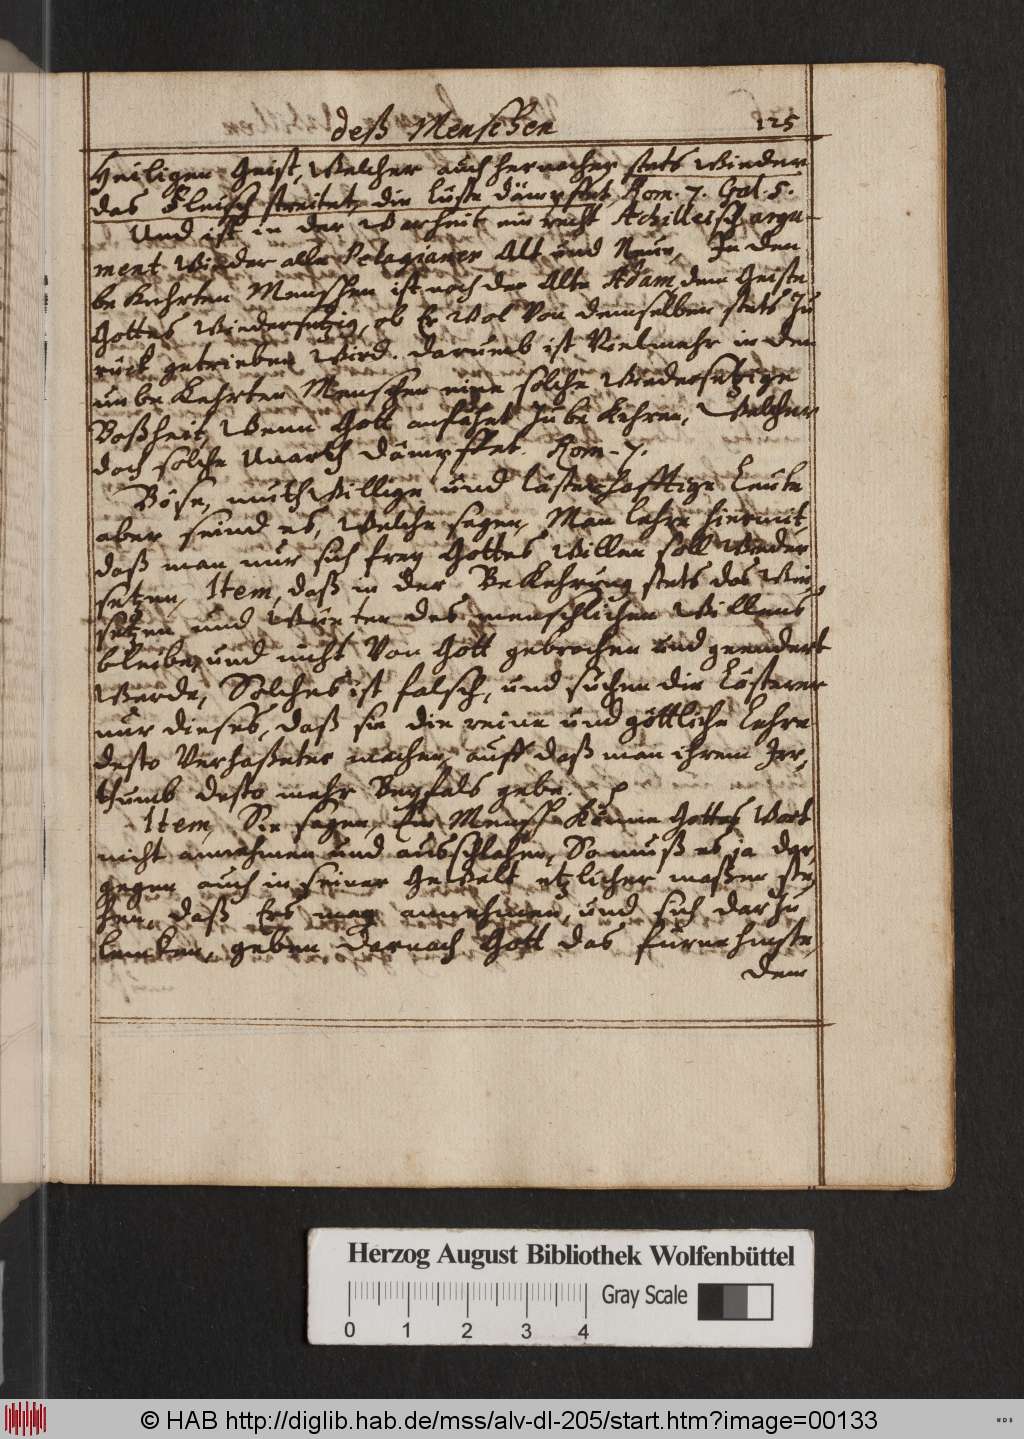 deß Menschen 125
Heiligen Geist, Welcher auch hernacher stets Wieder
das Fleisch streitet, die Lüste dämpffet, Rom. 7. Gal. 5.
Und ist in der Warheit ein recht Achilleisch argu-
ment Wieder alle Pelagianer Alt und Neue, In den
bekehrten Menschen ist noch der Alte Adam, dem Geiste
Gottes Wiedersetzig, ob Er Wol Von demselben stets Zu
rück getrieben Wird. darumb ist Vielmehr in den
unbekehrten Menschen eine solche Wiedersetzige
Boßheit, Wenn Gott anfähet Zu bekehren, Welcher
doch solche Unarth dämpffet. Rom. 7.
Böse, muthWillige und lästerhafftige Leute
aber seind es, Welche sagen, Man lehre hiermit
daß man nur sich frey Gottes Willen soll Wieder
setzen, Item, daß in der Bekehrung stets das Wie,
setzen und Wüeten des menschlichen Willens
bleibe, und nicht Von Gott gebrochen und geendert
Werde, Solches ist falsch, und suchen die Lästerer
nur dieses, daß sie die reine und göttliche Lehre
desto Verhaßeter machen, auff daß man ihrem Irr,
thumb desto mehr Beyfals gebe.
Item, Sie sagen, Ein Mensch Könne Gottes Wort
nicht annehmen und ausschlahen, So muß es ja dar,
gegen auch in seiner Gewalt etzlicher maßen ste,
hen, daß Ers mag annehmen, und sich dar Zu
lencken, geben darnach Gott das fürnehmste,
dem
Herzog August Bibliothek Wolfenbüttel
Gray Scale
0 1 2 3 4
© HAB http://diglib.hab.de/mss/alv-dl-205/start.htm?image=00133